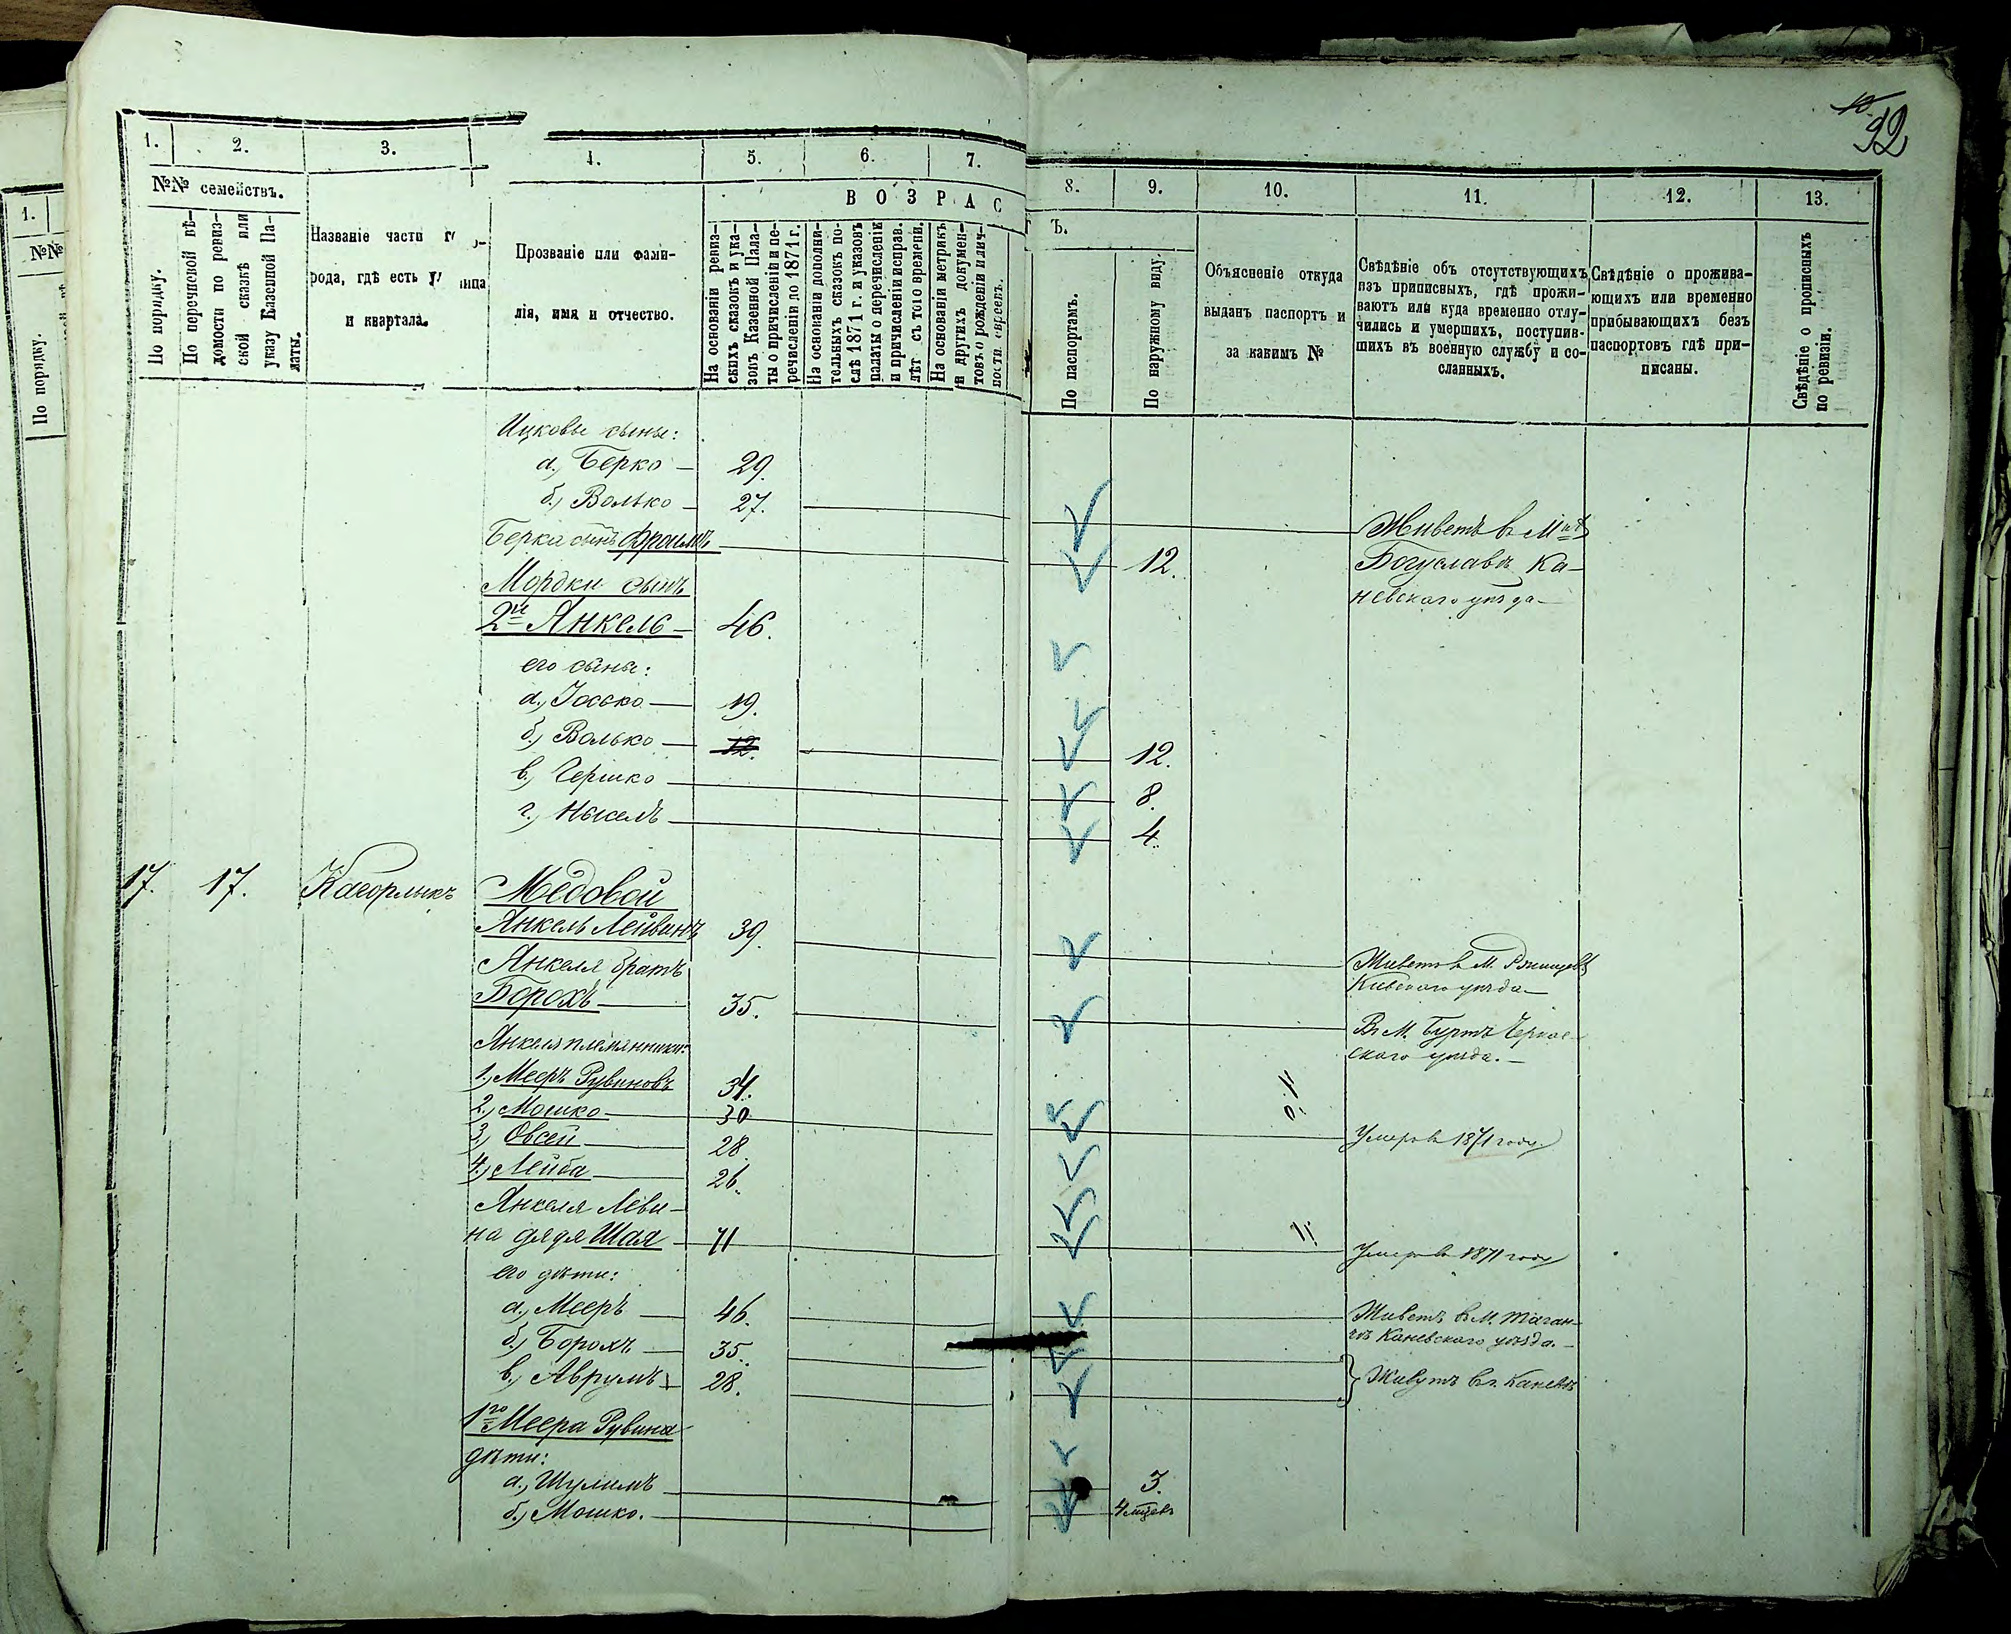 10.
92
1. 2. 3. 4. 5. 6. 7. 8. 9. 10. 11. 12. 13.
№№ семействъ.
По порядку.
По перечисной вѣ-
домости по ревиз-
ской сказкѣ или
указу Казенной Па-
латы.
Названіе части го-
рода, гдѣ есть улица
и квартала.
Прозваніе или фами-
лія, имя и отчество.
ВОЗРАСТЪ.
На основаніи ревиз-
скихъ сказокъ и ука-
зовъ Казенной Пала-
ты о причисленіи и пе-
речисленіи до 1871 г.
На основаніи дополни-
тельныхъ сказокъ по-
слѣ 1871 г. и указовъ
палаты о перечисленіи
и причисленіи исправ.
лѣт съ того времени.
На основаніи метрикъ
и другихъ докумен-
товъ о рожденіи и лич-
ности евреевъ.
По паспортамъ.
По наружному виду.
Объясненіе откуда
выданъ паспортъ и
за какимъ №
Свѣдѣніе объ отсутствующихъ
изъ приписныхъ, гдѣ прожи-
ваютъ или куда временно отлу-
чились и умершихъ, поступив-
шихъ въ военную службу и со-
сланныхъ.
Свѣдѣніе о прожива-
ющихъ или временно
прибывающихъ безъ
паспортовъ гдѣ при-
писаны.
Свѣдѣніе о прописныхъ
по ревизіи.
1.
№№
По порядку.
Ицковы сыны:
а., Берко — 29.
б., Волько — 27. Живетъ в М
Берка сынъ Фроимъ 12. Богуславѣ Ка-
Мордки сынъ невскаго уѣзда —
2й Янкель — 46.
его сыны:
а., Іосько — 19.
б., Волько — 12. 12.
в., Гершко 8.
г., Нысель 4.
17. 17. Кагорлыкъ Медовой
Янкель Лейвинъ 39.
Янкеля братъ Живетъ в М. Ржищевѣ
Борохъ — 35. Кіевскаго уѣзда —
Янкеля племянники: В М. Буртѣ Черкас-
скаго уѣзда. —
1., Мееръ Рувиновъ 34.
2., Мошко — 30
3., Овсей — 28. Умеръ в 1871 году
4., Лейба — 26.
Янкеля Леви-
на дядя Шая — 71 Умеръ в 1871 году
его дѣти:
а., Мееръ — 46. Живетъ в М. Таган-
чѣ Каневскаго уѣзда. —
б., Борохъ — 35.
в., Аврумъ — 28. Живутъ в г. Каневѣ
1го Меера Рувина
дѣти:
а., Шулимъ 3.
б., Мошко. — 4 мѣсев